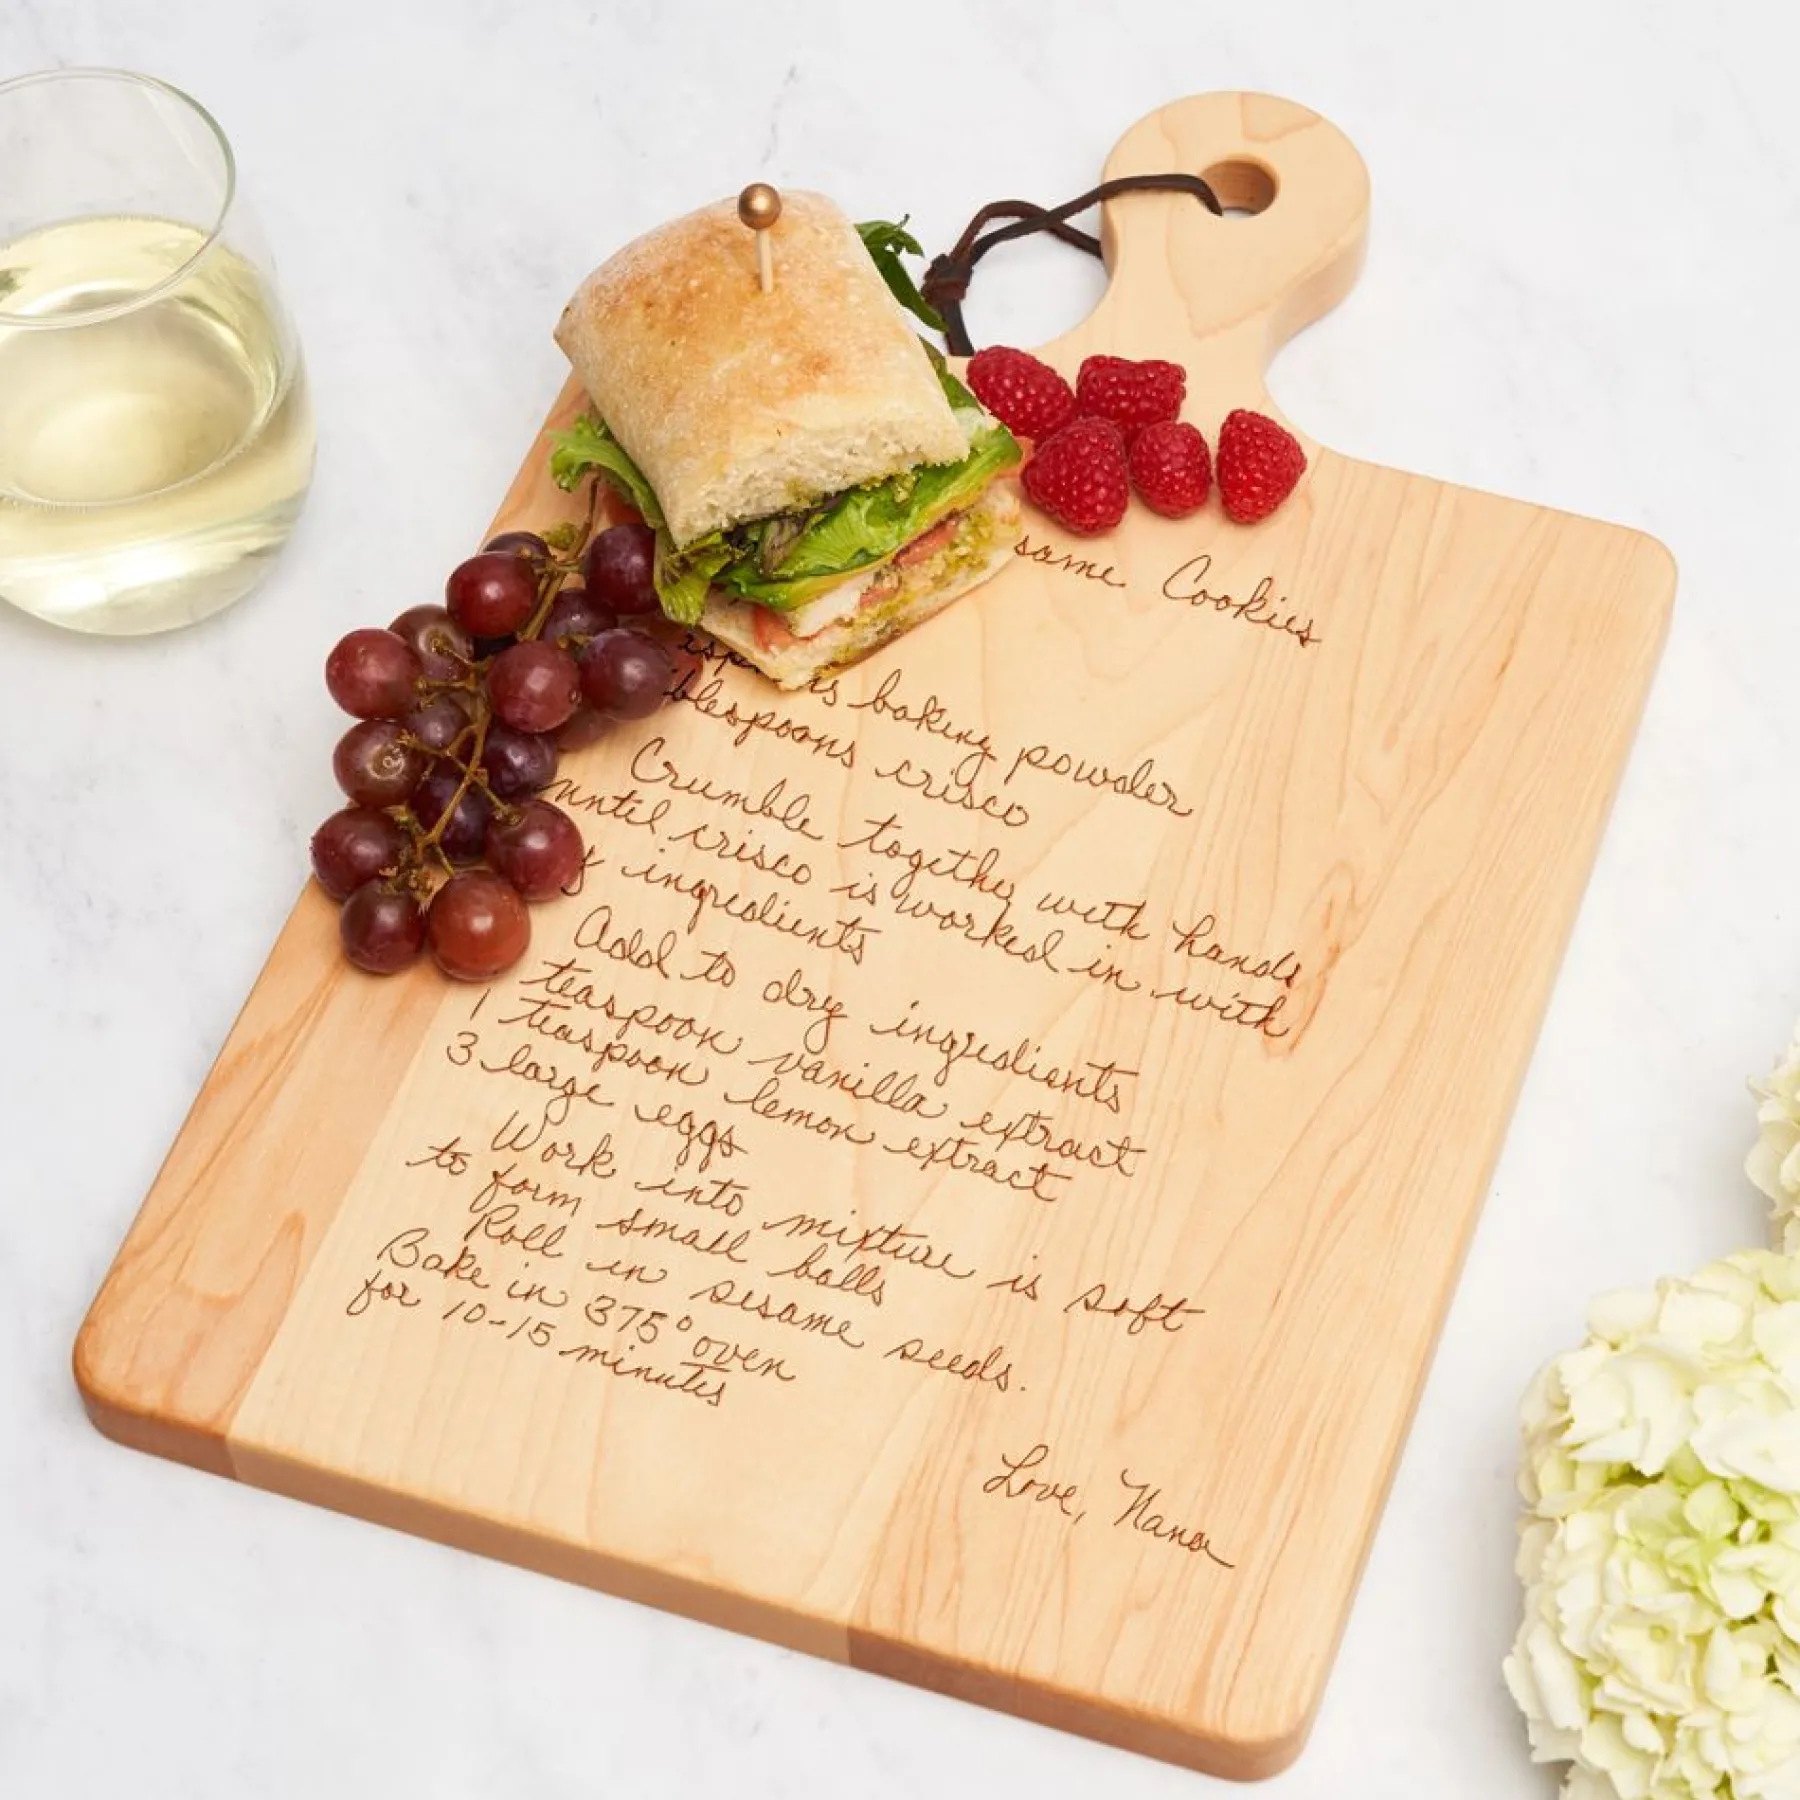 Cookies
baking powder
crisco
Crumble together with hands
until crisco is worked in with
ingredients
Add to dry ingredients
teaspoon vanilla extract
1 teaspoon lemon extract
3 large eggs
Work into mixture is soft
to form small balls
Roll in sesame seeds.
Bake in 375° oven
for 10-15 minutes
Love, Nana